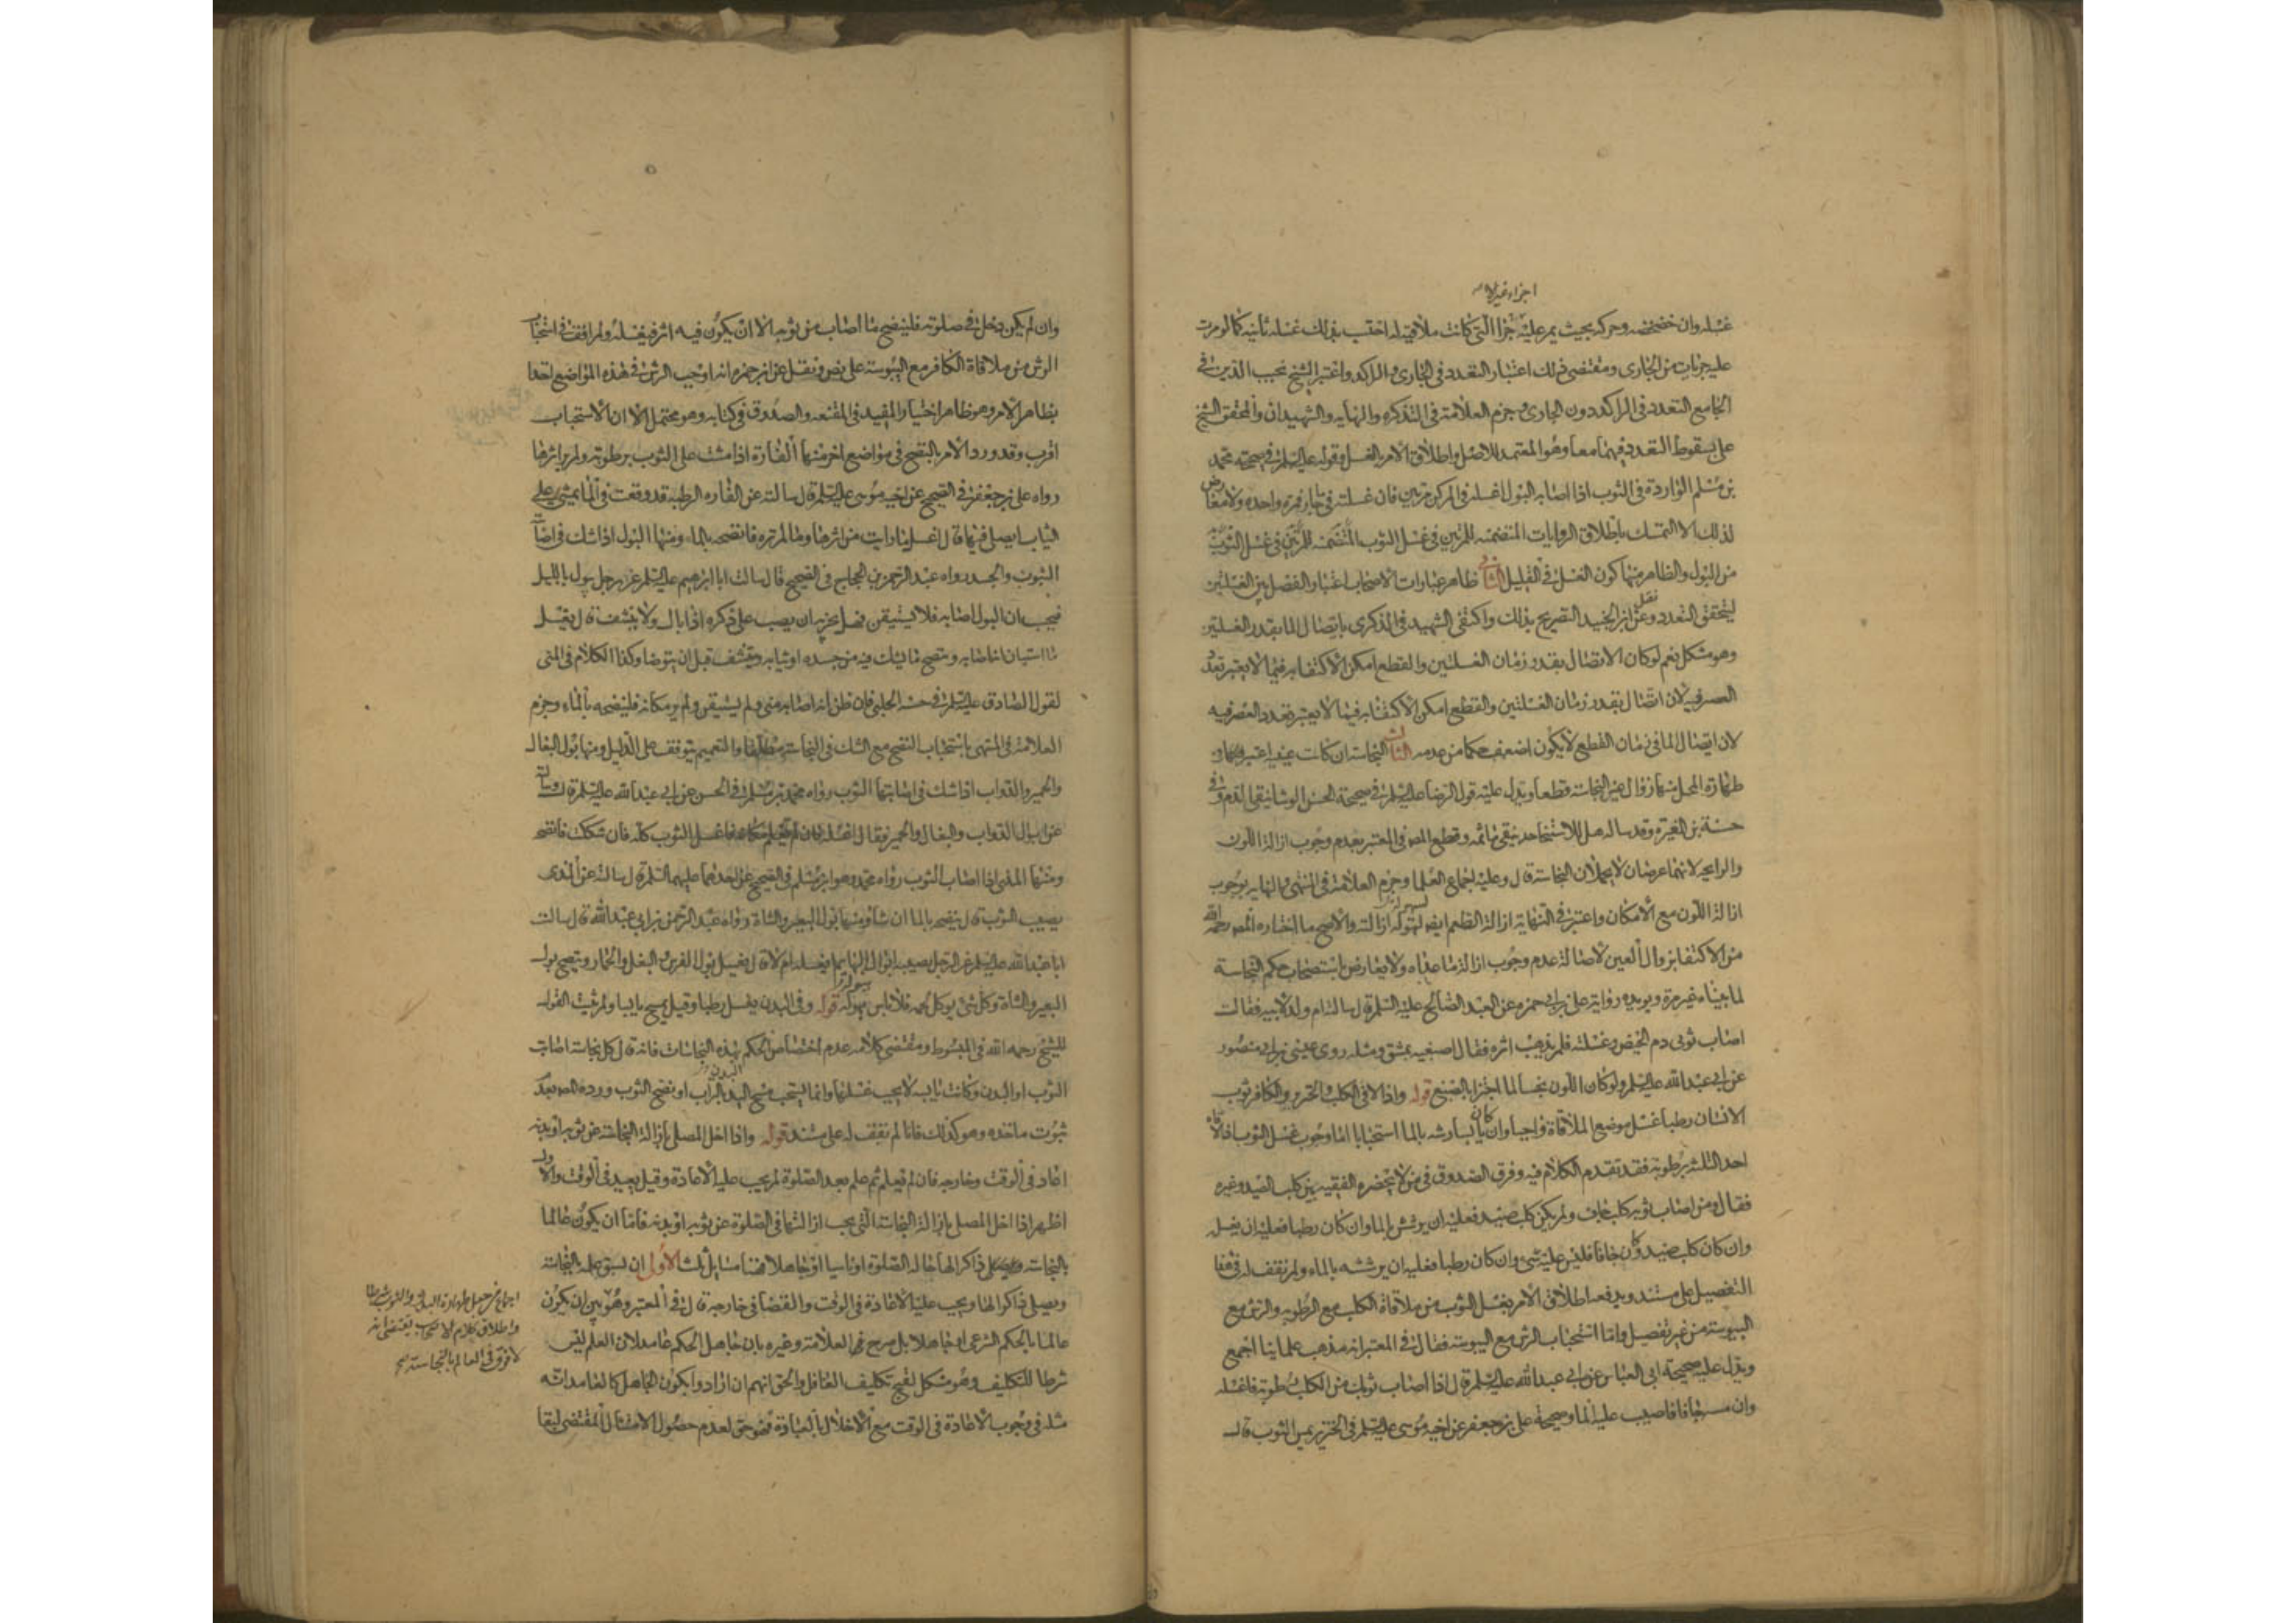 اجزاء غير لا
غسله وان خضخضه وحركه بحيث يمر عليه جزا التى كانت ملاقيه له احتسب بذلك غسله ثانيه كما لو مرت
عليه جزيات من الجارى ومقتضى ذلك اعتبار التعدد فى الجارى والراكد واعتبر الشيخ نجيب الدين فى
الجامع التعدد فى الراكد دون الجارى وجزم العلامة فى التذكره والنهايه والشهيدان والمحقق الشيخ
على بسقوط التعدد فيهما معا وهو المعتمد للاصل واطلاق الامر بالغسل وقوله عليه السلم فى صحيحه محمد
بن مسلم الواردة فى الثوب اذا اصابه البول اغسله فى المركن مرتين فان غسلته فى ما جار فمره واحده ولا معارض
لذلك الا التمسك باطلاق الروايات المتضمنه للمرتين فى غسل الثوب المتضمنه للمرتين فى غسل الثوب
من البول والظاهر منها كون الغسل فى القليل الثانى ظاهر عبارات الاصحاب اعتبار الفصل بين الغسلتين
ليتحقق التعدد ونقل عن ابن الجنيد التصريح بذلك واكتفى الشهيد فى الذكرى باتصال الما بقدر الغسلتين
وهو مشكل نعم لو كان الاتصال بقدر زمان الغسلتين والقطع امكن الاكتفا به فيما لا يعتبر تعدد
العصر فيه لان اتصال بقدر زمان الغسلتين والقطع امكن الاكتفا به فيما لا يعتبر تعدد العصر فيه
لان ايصال الما فى زمان القطع لا يكون اضعف حكما من عدمه الثالث النجاسة ان كانت عينيه اعتبر فى
طهارة المحل منها زوال عين النجاسة قطعا ويدل عليه قول الرضا عليه السلم فى صحيحة الحسن الوشا ينقى الدم وفى
حسنة بن المغيرة وقد ساله هل للاستنجا حد ينقى ما ثمه وقطع المص فى المعتبر بعدم وجوب ازالة اللون
والرايحه لانهما عرضان لا يحملان النجاسة قال وعليه اجماع العلما وجزم العلامة فى المنتهى والنهايه بوجوب
ازالة اللون مع الامكان واعتبر فى النهاية ازالة الطعم ايضا لسهولة ازالته والاصح ما اختاره المص رحمه الله
من الاكتفا بزوال العين لاصالة عدم وجوب ازالة ما عداه ولا يعارض باستصحاب حكم النجاسة
لما بيناه غير مرة ويويده رواية على بن ابى حمزه عن العبد الصالح عليه السلم قال سالته ام ولد لابيه فقالت
اصاب ثوبى دم الحيض وغسلته فلم يذهب اثره فقال اصبغيه بمشق ومثله روى عيسى بن ابى منصور
عن ابى عبد الله عليه السلم ولو كان اللون نجسا لما اجتزا بالصبغ قوله واذا لاقى الكلب والخنزير والكافر ثوب
الانسان رطبا غسل موضع الملاقاة واجبا وان كان يابسا رشه بالما استحبابا اما وجوب غسل الثوب اذا لاقاه
احد الثلثه برطوبه فقد تقدم الكلام فيه وفرق الصدوق فى من لا يحضره الفقيه بين كلب الصيد وغيره
فقال ومن اصاب ثوبه كلب جاف ولم يكن كلب صيد فعليه ان يرشه بالما وان كان رطبا فعليه ان يغسله
وان كان كلب صيد وكان جافا فليس عليه شى وان كان رطبا فعليه ان يرشه بالماء ولم نقف له فى هذا
التفصيل على مستند ويدفعه اطلاق الامر بغسل الثوب من ملاقاة الكلب مع الرطوبه والرش مع
اليبوسة من غير تفصيل واما استحباب الرش مع اليبوسه فقال فى المعتبر انه مذهب علماينا اجمع
ويدل عليه صحيحة ابى العباس عن ابى عبد الله عليه السلم قال اذا اصاب ثوبك من الكلب رطوبة فاغسله
وان مسه جافا فاصبب عليه الما وصحيحة على بن جعفر عن اخيه موسى عليه السلم فى الخنزير يمس الثوب قال
وان لم يكن دخل فى صلوته فلينضح ما اصاب من ثوبه الا ان يكون فيه اثر فيغسله ولم اقف فى استحباب
الرش من ملاقاة الكافر مع اليبوسة على نص ونقل عن ابن حمزه انه اوجب الرش فى هذه المواضع اخذا
بظاهر الامر وهو ظاهر اختيار المفيد فى المقنعه والصدوق فى كتابه وهو محتمل الا ان الاستحباب
اقرب وقد ورد الامر بالنضح فى مواضع اخر منها الفارة اذا مشت على الثوب برطوبة ولم ير اثرها
رواه على بن جعفر فى الصحيح عن اخيه موسى عليه السلم قال سالته عن الفاره الرطبه قد وقعت فى الما يمشى على
الثياب ايصلى فيها قال اغسل ما رايت من اثرها وما لم تره فانضحه بالماء ومنها البول اذا شك فى اصابته
الثوب والجسد رواه عبد الرحمن بن الحجاج فى الصحيح قال سالت ابا ابرهيم عليه السلم عن رجل يبول بالليل
فيحسب ان البول اصابه فلا يستيقن فهل يجزيه ان يصب على ذكره اذا بال ولا ينشف قال يغسل
ما استبان انه اصابه وينضح ما يشك فيه من جسده او ثيابه وينشف قبل ان يتوضا وكذا الكلام فى المنى
لقول الصادق عليه السلم فى حسنة الحلبى فان ظن انه اصابه منى ولم يستيقن ولم ير مكانه فلينضحه بالماء وجزم
العلامة فى المنتهى باستحباب النضح مع الشك فى النجاسة مطلقا والتعميم يتوقف على الدليل ومنها بول البغال
والحمير والدواب اذا شك فى اصابتها الثوب رواه محمد بن مسلم فى الحسن عن ابى عبد الله عليه السلم قال وسالته
عن ابوال الدواب والبغال والحمير فقال اغسله فان لم تعلم مكانه فاغسل الثوب كله فان شككت فانضحه
ومنها المذى اذا اصاب الثوب رواه محمد وهو ابن مسلم فى الصحيح عن احدهما عليهما السلم قال سالته عن المذى
يصيب الثوب قال ينضحه بالما ان شا ومنها بول البعير والشاة رواه عبد الرحمن بن ابى عبد الله قال سالت
ابا عبد الله عليه السلم عن الرجل يصيبه ابوال البهايم ايغسله ام لا قال يغسل بول الفرس والبغل والحمار وينضح بول
البعير والشاة وكل شى يوكل لحمه فلا باس ببوله قوله وفى البدن يغسل رطبا وقيل يمسح يابسا ولم يثبت القول
للشيخ رحمه الله فى المبسوط ومقتضى كلامه عدم اختصاص الحكم بهذه النجاسات فانه قال كل نجاسة اصابت
الثوب او البدن وكانت يابسه لا يجب غسلها وانما يستحب مسح اليد بالتراب او نضح الثوب ورده المص بعدم
ثبوت ماخذه وهو كذلك فانا لم نقف له على مستند قوله واذا اخل المصلى بازالة النجاسة عن ثوبه او بدنه
اعاد فى الوقت وخارجه فان لم يعلم ثم علم بعد الصلوة لم يجب عليه الاعادة وقيل يعيد فى الوقت والاول
اظهر اذا اخل المصلى بازالة النجاسة التى يجب ازالتها فى الصلوة عن ثوبه او بدنه فاما ان يكون عالما
بالنجاسة ذاكرا لها حالة الصلوة او ناسيا او جاهلا فهنا مسايل ثلث الاولى ان يسبق علمه بالنجاسة
ويصلى ذاكرا لها ويجب عليه الاعادة فى الوقت والقضا فى خارجه قال فى المعتبر وهو بين ان يكون
عالما بالحكم الشرعى او جاهلا بل صرح العلامة وغيره بان جاهل الحكم عامد لان العلم ليس
شرطا للتكليف وهو مشكل لقبح تكليف الغافل والحق انهم ان ارادوا بكون الجاهل كالعامد انه
مثله فى وجوب الاعادة فى الوقت مع الاخلال بالعبادة فهو حق لعدم حصول الامتثال المقتضى لبقا
اجماع من جعل طهارة البدن والثوب شرطا
واطلاق كلام الاصحاب يقتضى انه
لا فرق فى العالم بالنجاسة